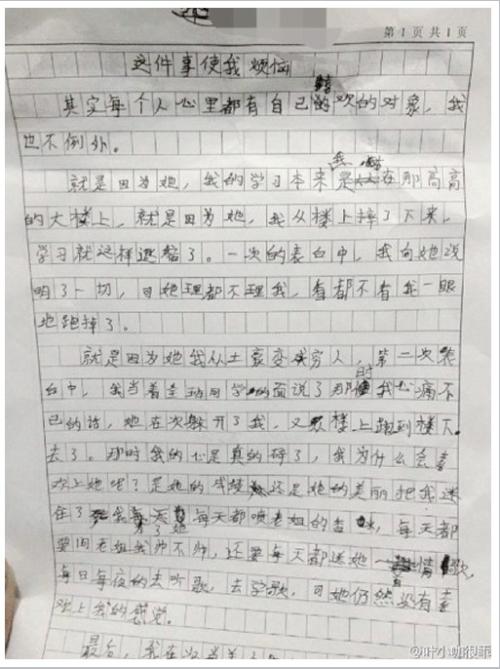 第1页 共1页
这件事使我烦恼
其实每个人心里都有自己喜欢的对象,我
也不例外。
就是因为她,我的学习本来是在那高高
的大楼上,就是因为她,我从楼上摔了下来,
学习就这样退落了。一次的表白中,我向她说
明了一切,可她理都不理我,看都不看我一眼
地跑掉了。
就是因为她我从土豪变成穷人,第二次表
白中,我当着全班同学的面说了那时我心痛不
已的话,她在次躲开了我,又从楼上跑到楼下
去了。那时我的心是真的碎了,我为什么会喜
欢上她呢?是她的成绩还是她的美丽把我迷
住了 为了她每天都喷老姐的香水,每天都
要问老姐我帅不帅,还要每天都送她一首情歌,
每日每夜的去听歌,去学歌,可她仍然没有喜
欢上我的感觉。
最后,我在
@叶小咖很菲